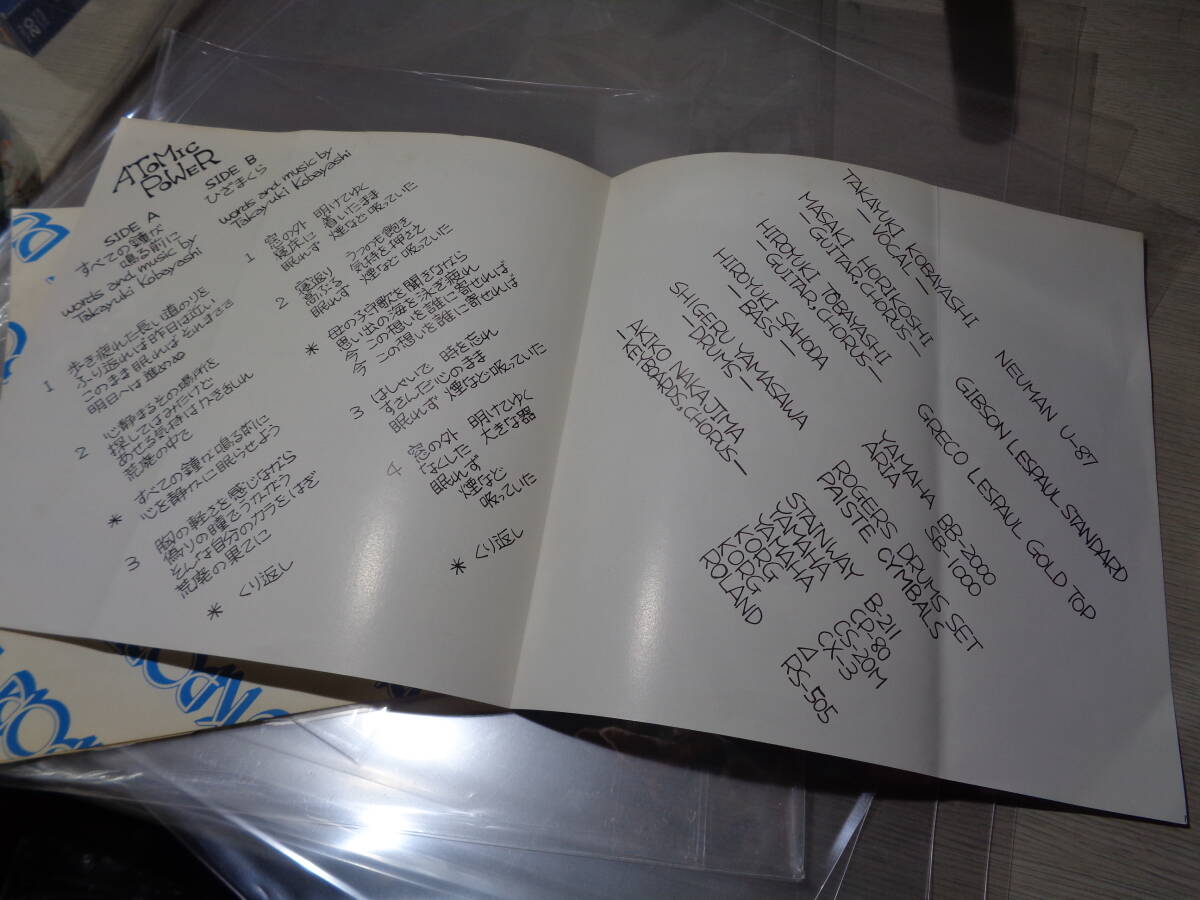 ATOMIC
POWER
SIDE A
すべての鐘が
鳴る前に
words and music by
Takayuki Kobayashi
1 歩き疲れた長い道のりを
ふり返れば昨日は近い
このまま眠れば それまでさ
明日へは進めぬ
2 心静まるその場所を
探してはみたけど
あせる気持は かきまわし
荒廃の中で
* すべての鐘が鳴る前に
心を静かに眠らせよう
3 胸の軽さを感じながら
偽りの瞳でうかがう
そんな自分のカラをはぎ
荒廃の果てに
* くり返し
SIDE B
ひざまくら
words and music by
Takayuki Kobayashi
1 窓の外 明けてゆく
寝床に 着いたまま
眠れず 煙など吸っていた
2 寝返り うつのも飽き
高ぶる 気持を押さえ
眠れず 煙など吸っていた
* 母の子守歌を聞きながら
思い出の海を泳ぎ疲れ
今 この想いを誰に寄せれば
今 この想いを誰に寄せれば
3 はしゃいで 時を忘れ
すさんだ心のまま
眠れず 煙など吸っていた
4 窓の外 明けてゆく
なくした 大きな器
眠れず
煙など
吸っていた
* くり返し
TAKAYUKI KOBAYASHI
—VOCAL—
MASAKI HORIKOSHI
—GUITAR.CHORUS—
HIROYUKI TOBAYASHI
—GUITAR.CHORUS—
HIROYUKI SAHODA
—BASS—
SHIGERU YAMASAWA
—DRUMS—
AKIKO NAKAJIMA
—KEYBOARDS.CHORUS—
NEUMAN U-87
GIBSON LESPAUL STANDARD
GRECO LESPAUL GOLD TOP
YAMAHA BB-2000
ARIA SB-1000
ROGERS DRUMS SET
PAISTE CYMBALS
STAINWAY B-211
YAMAHA CP-80
YAMAHA CS-20M
KORG CX-3
KORG Δ
ROLAND RS-505